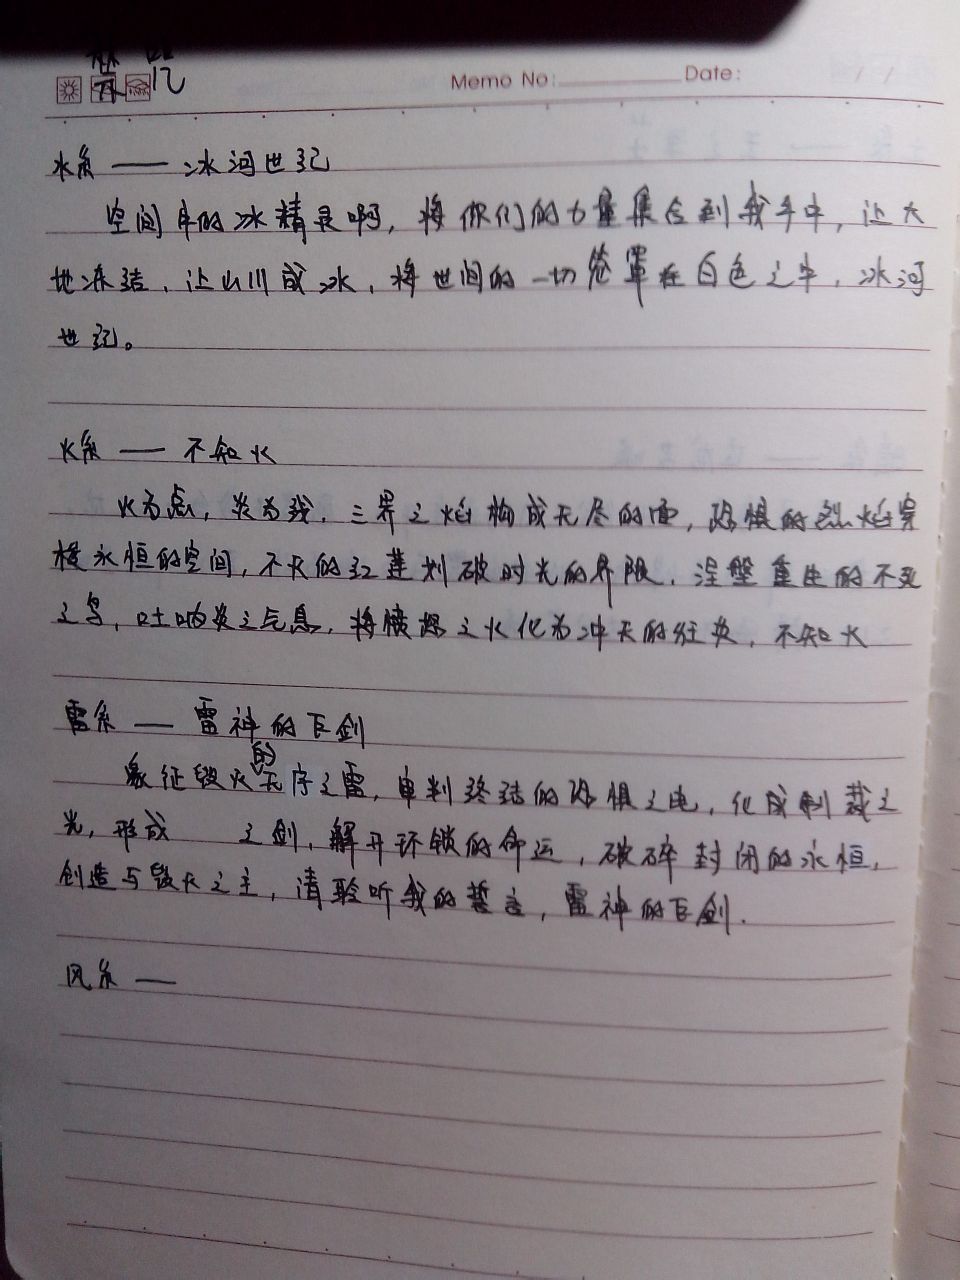 禁咒
Memo No: Date: / /
水系 — 冰河世记
空间中的冰精灵啊，将你们的力量集合到我手中，让大
地冻结，让山川成冰，将世间的一切笼罩在白色之中，冰河
世记。
火系 — 不知火
火为点，炎为线，三界之焰构成无尽的面，恐惧的烈焰穿
梭永恒的空间，不灭的红莲划破时光的界限，涅槃重生的不死
之鸟，吐呐炎之气息，将愤怒之火化为冲天的狂炎，不知火
雷系 — 雷神的巨剑
象征毁灭的无序之雷，审判终结的恐惧之电，化成制裁之
光，形成 之剑，解开环锁的命运，破碎封闭的永恒，
创造与毁灭之主，请聆听我的誓言，雷神的巨剑.
风系 —